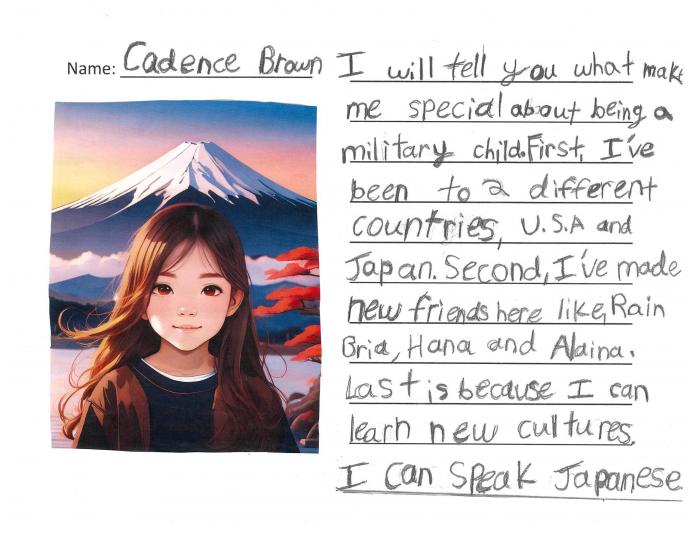 Name: Cadence Brown
I will tell you what make
me special about being a
military child. First, I've
been to 2 different
countries, U.S.A and
Japan. Second, I've made
new friends here like, Rain
Bria, Hana and Alaina.
Last is because I can
learn new cultures.
I can speak Japanese